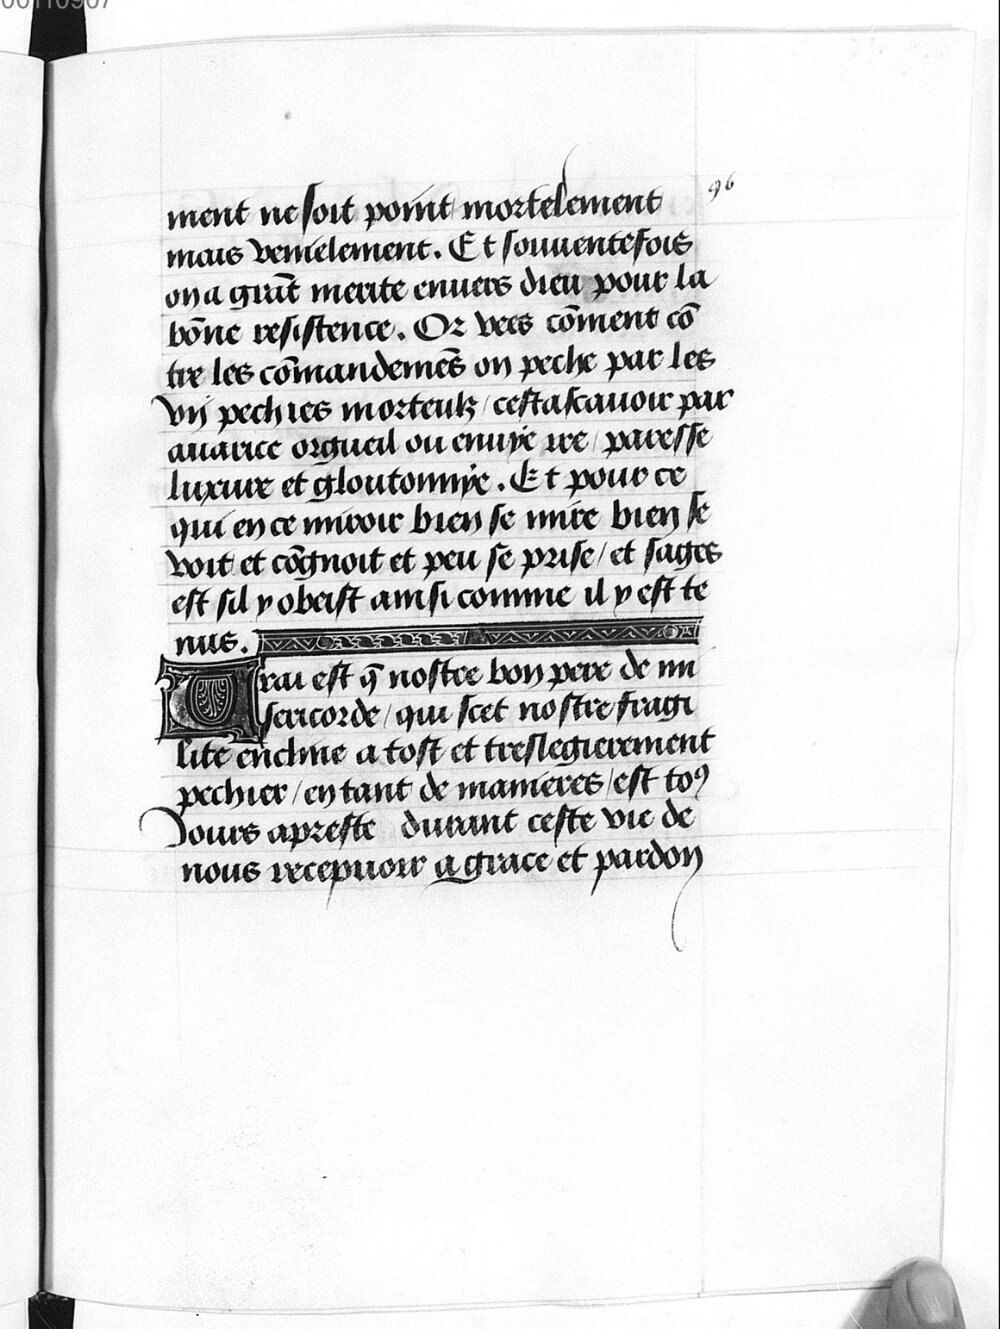 96
ment ne soit point mortelement
mais venielement. Et souuentefois
on a grãt merite enuers dieu pour la
bõne resistence. Or vees cõment cõ
tre les cõmandemẽs on peche par les
vij pechies morteulz / cestascauoir par
auarice orgueil ou enuije ire / paresse
luxure et gloutonnije. Et pour ce
qui en ce miroir bien se mire bien se
voit et cõgnoit et peu se prise / et sages
est sil y obeist ainsi comme il y est te
nus.
Vrai est q̃ nostre bon pere de mi
sericorde / qui scet nostre fragi
lite encline a tost et treslegierement
pechier / en tant de manieres / est toꝯ
Jours apreste durant ceste vie de
nous recepuoir a grace et pardon